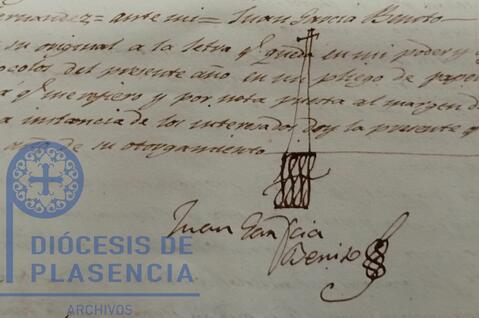 ernandez = ante mi = Juan Garcia Benito
su original a la letra q.e queda en mi poder y
ocolos del presente año en un pliego de papel
a q.e me refiero y por nota puesta al margen d
a instancia de los interesados doy la presente
año de su otorgamiento
Juan Garcia
Benito
DIÓCESIS DE
PLASENCIA
ARCHIVOS